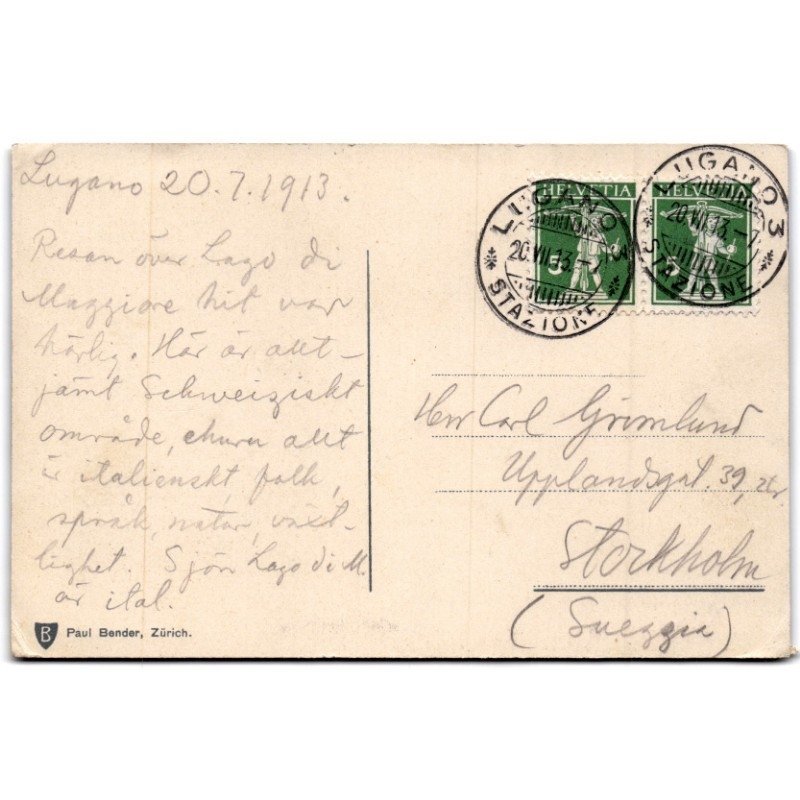 Lugano 20.7.1913.
Resan över Lago di
Maggiore hit var
härlig. Här är allt-
jämt Schweiziskt
område, churu allt
är italienskt, folk,
språk, natur, växt-
lighet. Sjön Lago di M.
är ital.
B Paul Bender, Zürich.
HELVETIA
5
HELVETIA
5
LUGANO 3
20.VII.13.-7
STAZIONE
LUGANO 3
20.VII.13.-7
STAZIONE
Herr Carl Grimlund
Upplandsgat. 39,
Stockholm
(Suezzia)